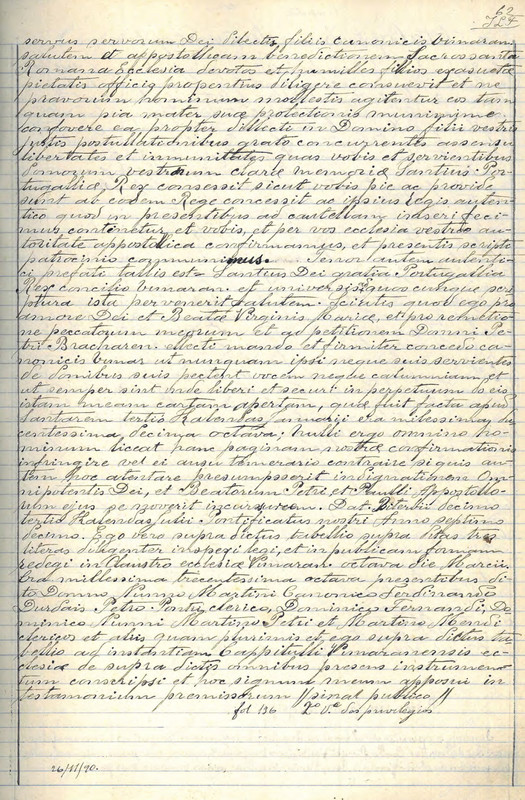 62
servus servorum Dei dilectis filiis canonicis vimaran
salutem et appostollicam benedictionem Sacrossanta
Romana Ecclesia devotos et humilles filios
pietatis officiis propentius diligere consuevit et ne
pravorum hominum mollestis agitentur eos tam
quam pia mater suæ protectionis munimime
confovere ea propter dillecti in Domino filii vestris
justis postullationibus grato concurrentes assensu
libertates et inmunittates quas vobis et servientibus
domorum vestrarum claræ memoriæ Santius Por-
tugalliæ Rex consessit sicut vobis pie ac provide
sunt ab eodem Rege concessit ac ipsius legis auten-
tico quod in presentibus ad cautellam inseri feci-
mus continetur et vobis, et per vos ecclesia vestræ au-
toritate appostolica confirmamus, et presentis scripto
patrocinio communimus. Tenor autem autenti-
ci prefati tallis est = Santius Dei gratia Portugallia
Rex concilio vimaran et universis quos cunque scri-
ptura ista pervenerit salutem. Sciatis quod ego pro
amore Dei et Beatæ Virginis Mariæ, et pro remctio-
ne peccatorum meorum et ad petitionem Domni Pe-
tri Bracharen ellecti mando et firmiter concedo ca-
nonicis vimar ut nunquam ipsi neque suis servientes
de domibus suis pectent vocem neque calumnium et
ut semper sint inde liberi et securi in perpetuum do eis
istam meam cartam apertam, quæ fuit facta apud
Santarem tertio Kalendas Januarii era millessima du
centessima decima octava; nulli ergo omnino ho-
minum liceat hanc paginam nostræ confirmationis
infringire vel ei ausu temerario contraire si quis au-
tem hoc atentare presumpserit indignationem Om-
nipotentis Dei, et Beatorum Petri et Paulli Appostollo-
rum ejus se noverit incursurum. Dat. Viterbii decimo
tertio Kalendas Julii Pontificatus nostri Anno septimo
decimo. Ego vero supra dictus tabellio supra ditas
literas diligenter inspegi legi, et in publicam formam
redegi in Claustro ecclesiæ Vimaran. octava die Marcii.
Era millessima trecentessima octava presentibus di-
to Domno Nunno Martini Canonico Ferdinando
Durdais Petro Pontii clerico, Dominico Fernandi, Do-
minico Nunni Martino Petri et Martino Menendi
clericos et aliis quam plurimis et ego supra dictus ta-
bellio ad instantiam Cappitulli Vimaranensis ec-
clesiæ de supra dictis omnibus presens instrumen-
tum conscripsi et hoc signum meum apposui in
testamonium premissorum // sinal publico //
fol 136 2º Vª dos privilegios
26/11/90.